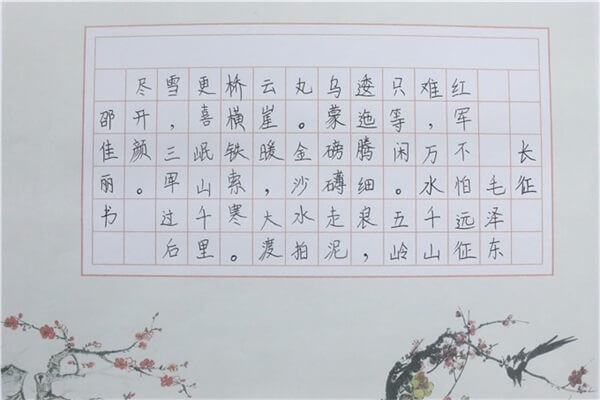 长征
毛泽东
红军不怕远征
难，万水千山
只等闲。五岭
逶迤腾细浪，
乌蒙磅礴走泥
丸。金沙水拍
云崖暖，大渡
桥横铁索寒。
更喜岷山千里
雪，三军过后
尽开颜。
邵佳丽书